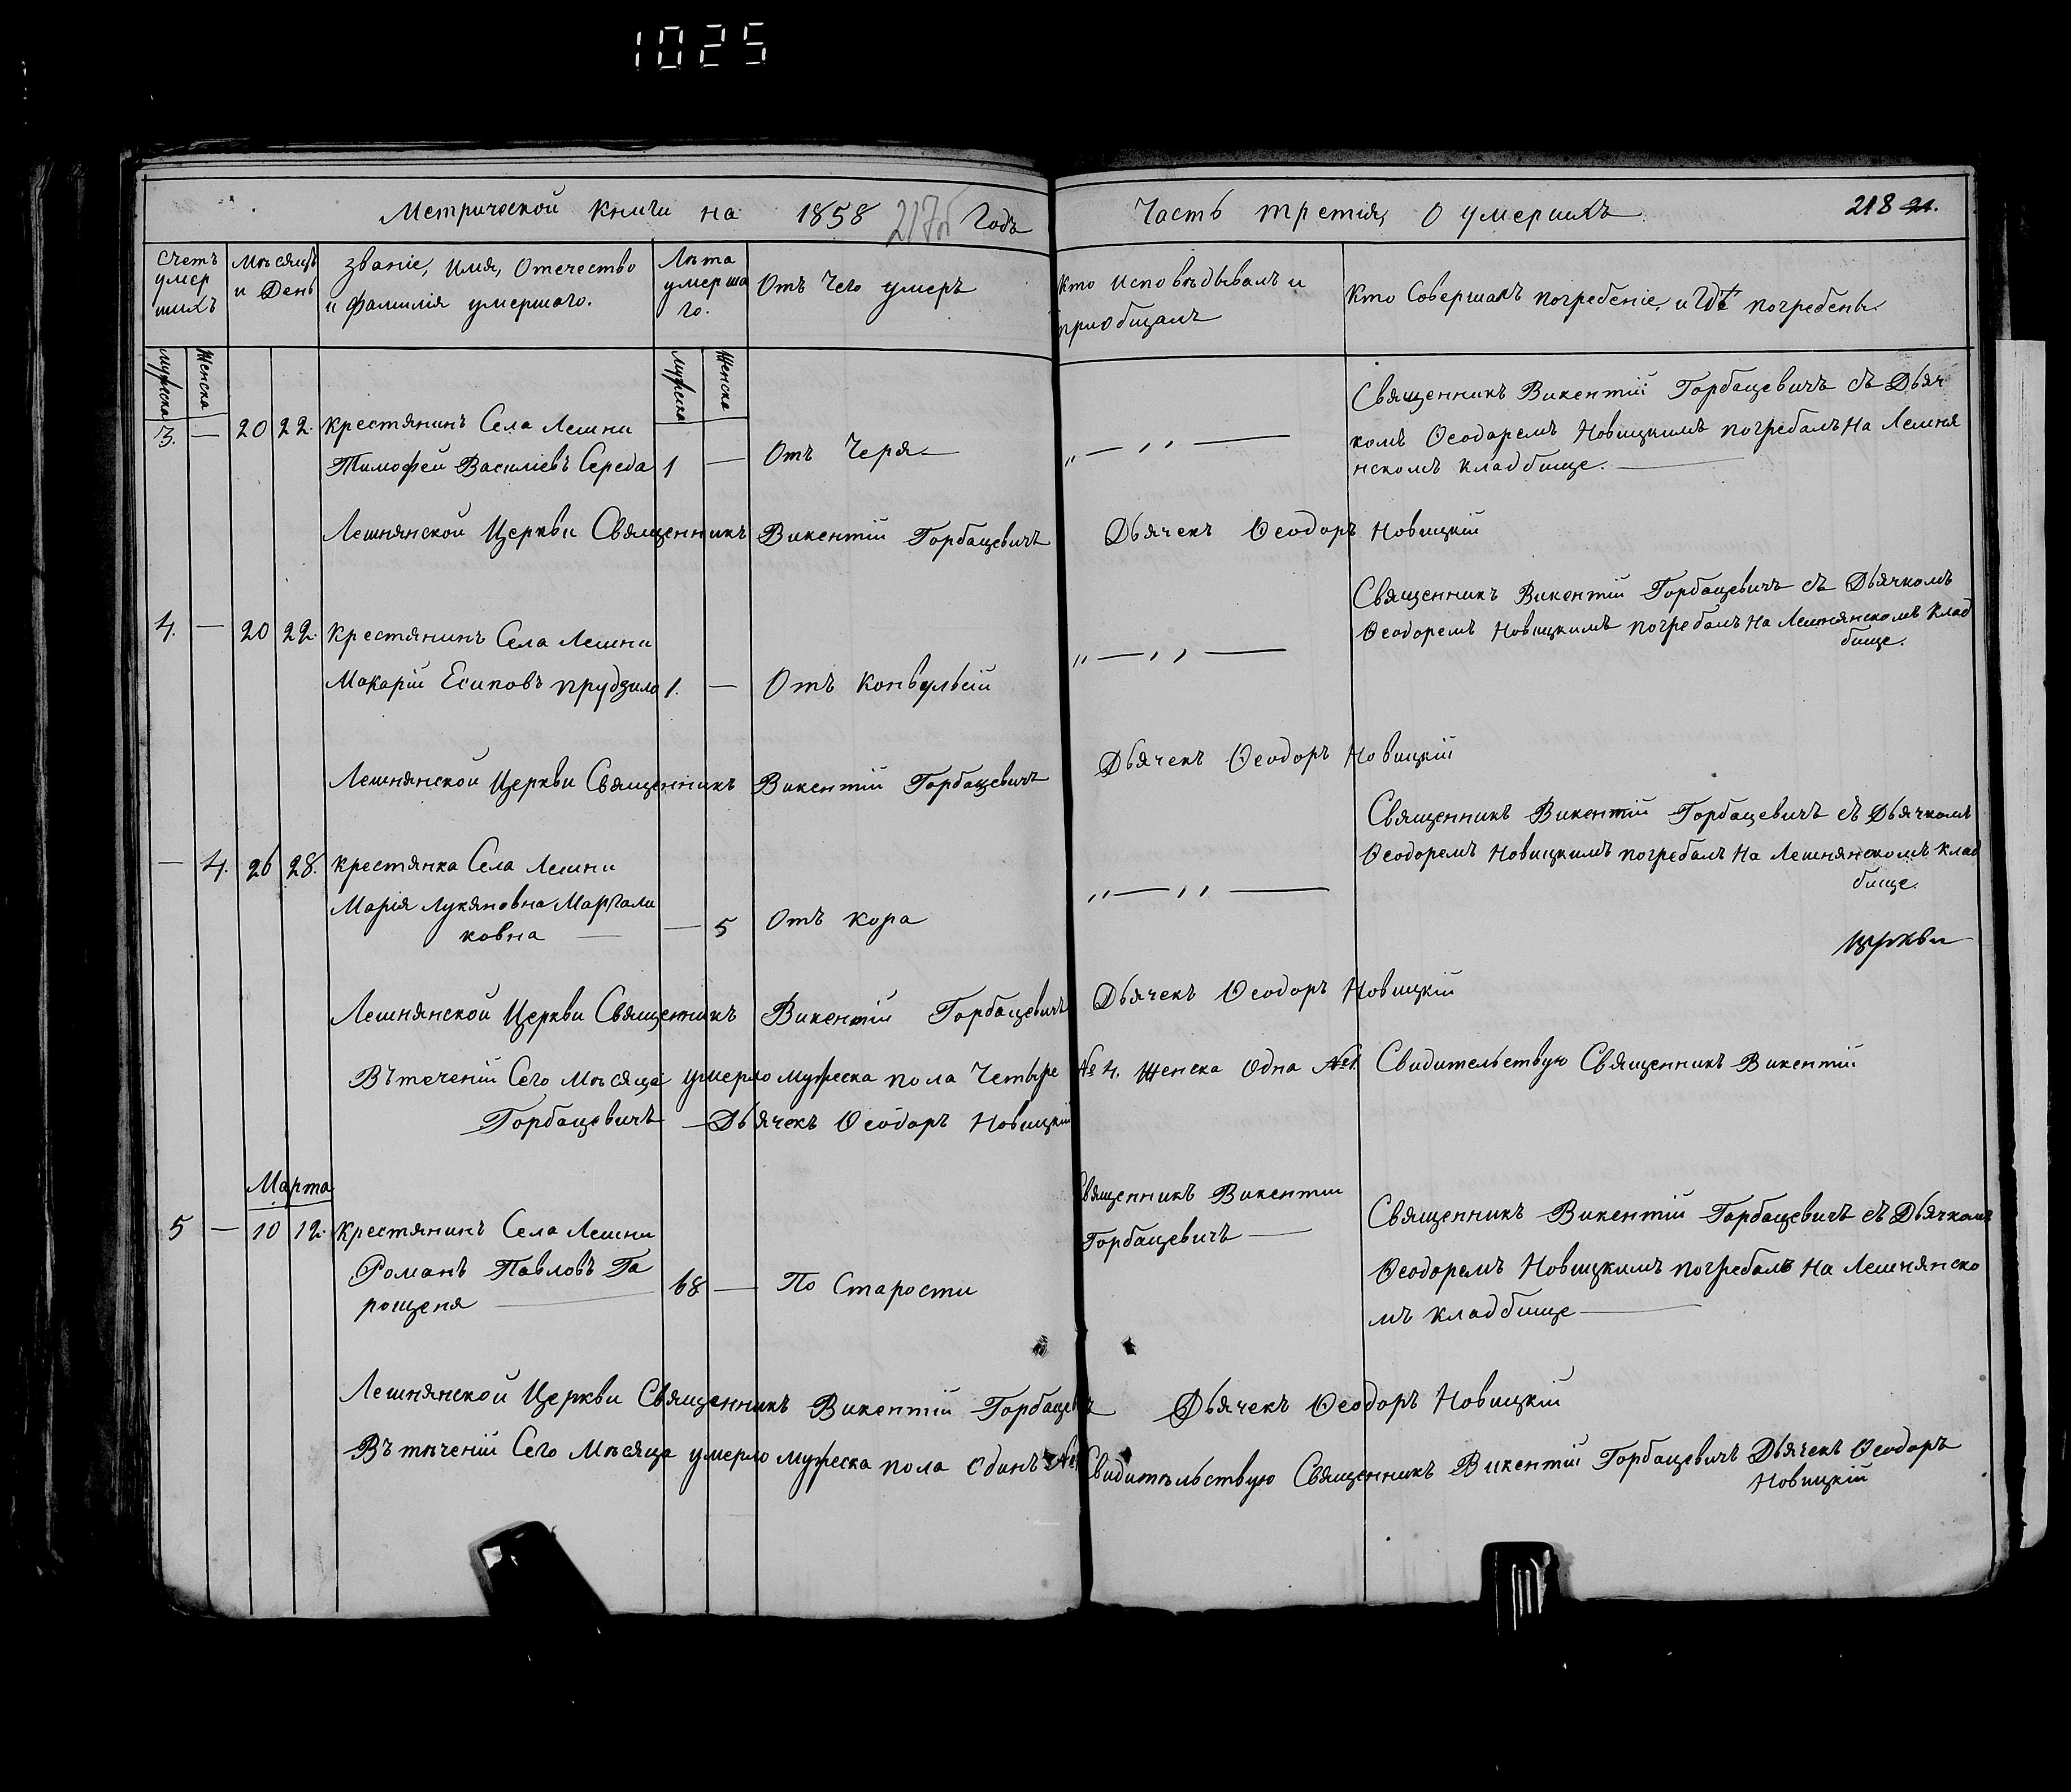 1025
Метрической книги на 1858 217об Годъ
Часть третія, О умершихъ 218 21.
Счетъ умер шихъ
Мѣсяцъ и День
Званіе, Имя, Отечество и фамилія умершаго.
Лѣта умерша го.
Отъ Чего умеръ
Кто Исповѣдывалъ и приобщалъ
Кто Совершалъ погребеніе, и Гдѣ погребены.
Мужеска
Женска
Мужеска
Женска
3. — 20 22. Крестянинъ Села Лешни
Тимофей Василіевъ Середа 1 — Отъ Черя —
„ — „ —
Священникъ Викентій Горбацевичъ съ Дьяч
комъ Ѳеодоремъ Новицкимъ погребалъ На Лешня
нскомъ кладбище. —
Лешнянской Церкви Священникъ Викентій Горбацевичъ Дьячекъ Ѳеодоръ Новицкій
4. — 20 22. Крестянинъ Села Лешни
Макарій Есиповъ прудзило 1. — Отъ Конвульсій
„ — „ —
Священникъ Викентій Горбацевичъ съ Дьячкомъ
Ѳеодоремъ Новицкимъ погребалъ На Лешнянскомъ Клад
бище.
Лешнянской Церкви Священникъ Викентій Горбацевичъ Дьячекъ Ѳеодоръ Новицкій
— 4. 26 28. Крестянка Села Лешни
Марія Лукяновна Маргали
ковна — — 5 Отъ кора
„ — „ —
Священникъ Викентій Горбацевичъ съ Дьячкомъ
Ѳеодоремъ Новицкимъ погребалъ На Лешнянскомъ Клад
бище.
Церкви
Лешнянской Церкви Священникъ Викентій Горбацевичъ Дьячекъ Ѳеодоръ Новицкій
Въ теченіи Сего Мѣсяца умерло мужеска пола Четыре № 4. Женска Одна №1 Свидительствую Священникъ Викентій
Горбацевичъ — Дьячекъ Ѳеодоръ Новицкій
Марта
5 — 10 12. Крестянинъ Села Лешни
Романъ Павловъ Га
рощеня — 68 — По Старости
Священникъ Викентій
Горбацевичъ —
Священникъ Викентій Горбацевичъ съ Дьячкомъ
Ѳеодоремъ Новицкимъ погребалъ На Лешнянско
мъ кладбище —
Лешнянской Церкви Священникъ Викентій Горбацевичъ Дьячекъ Ѳеодоръ Новицкій
Въ тѣченіи Сего Мѣсяца умерло мужеска пола Одинъ Свидитѣльствую Священникъ Викентій Горбацевичъ Дьячекъ Ѳеодоръ
Новицкій